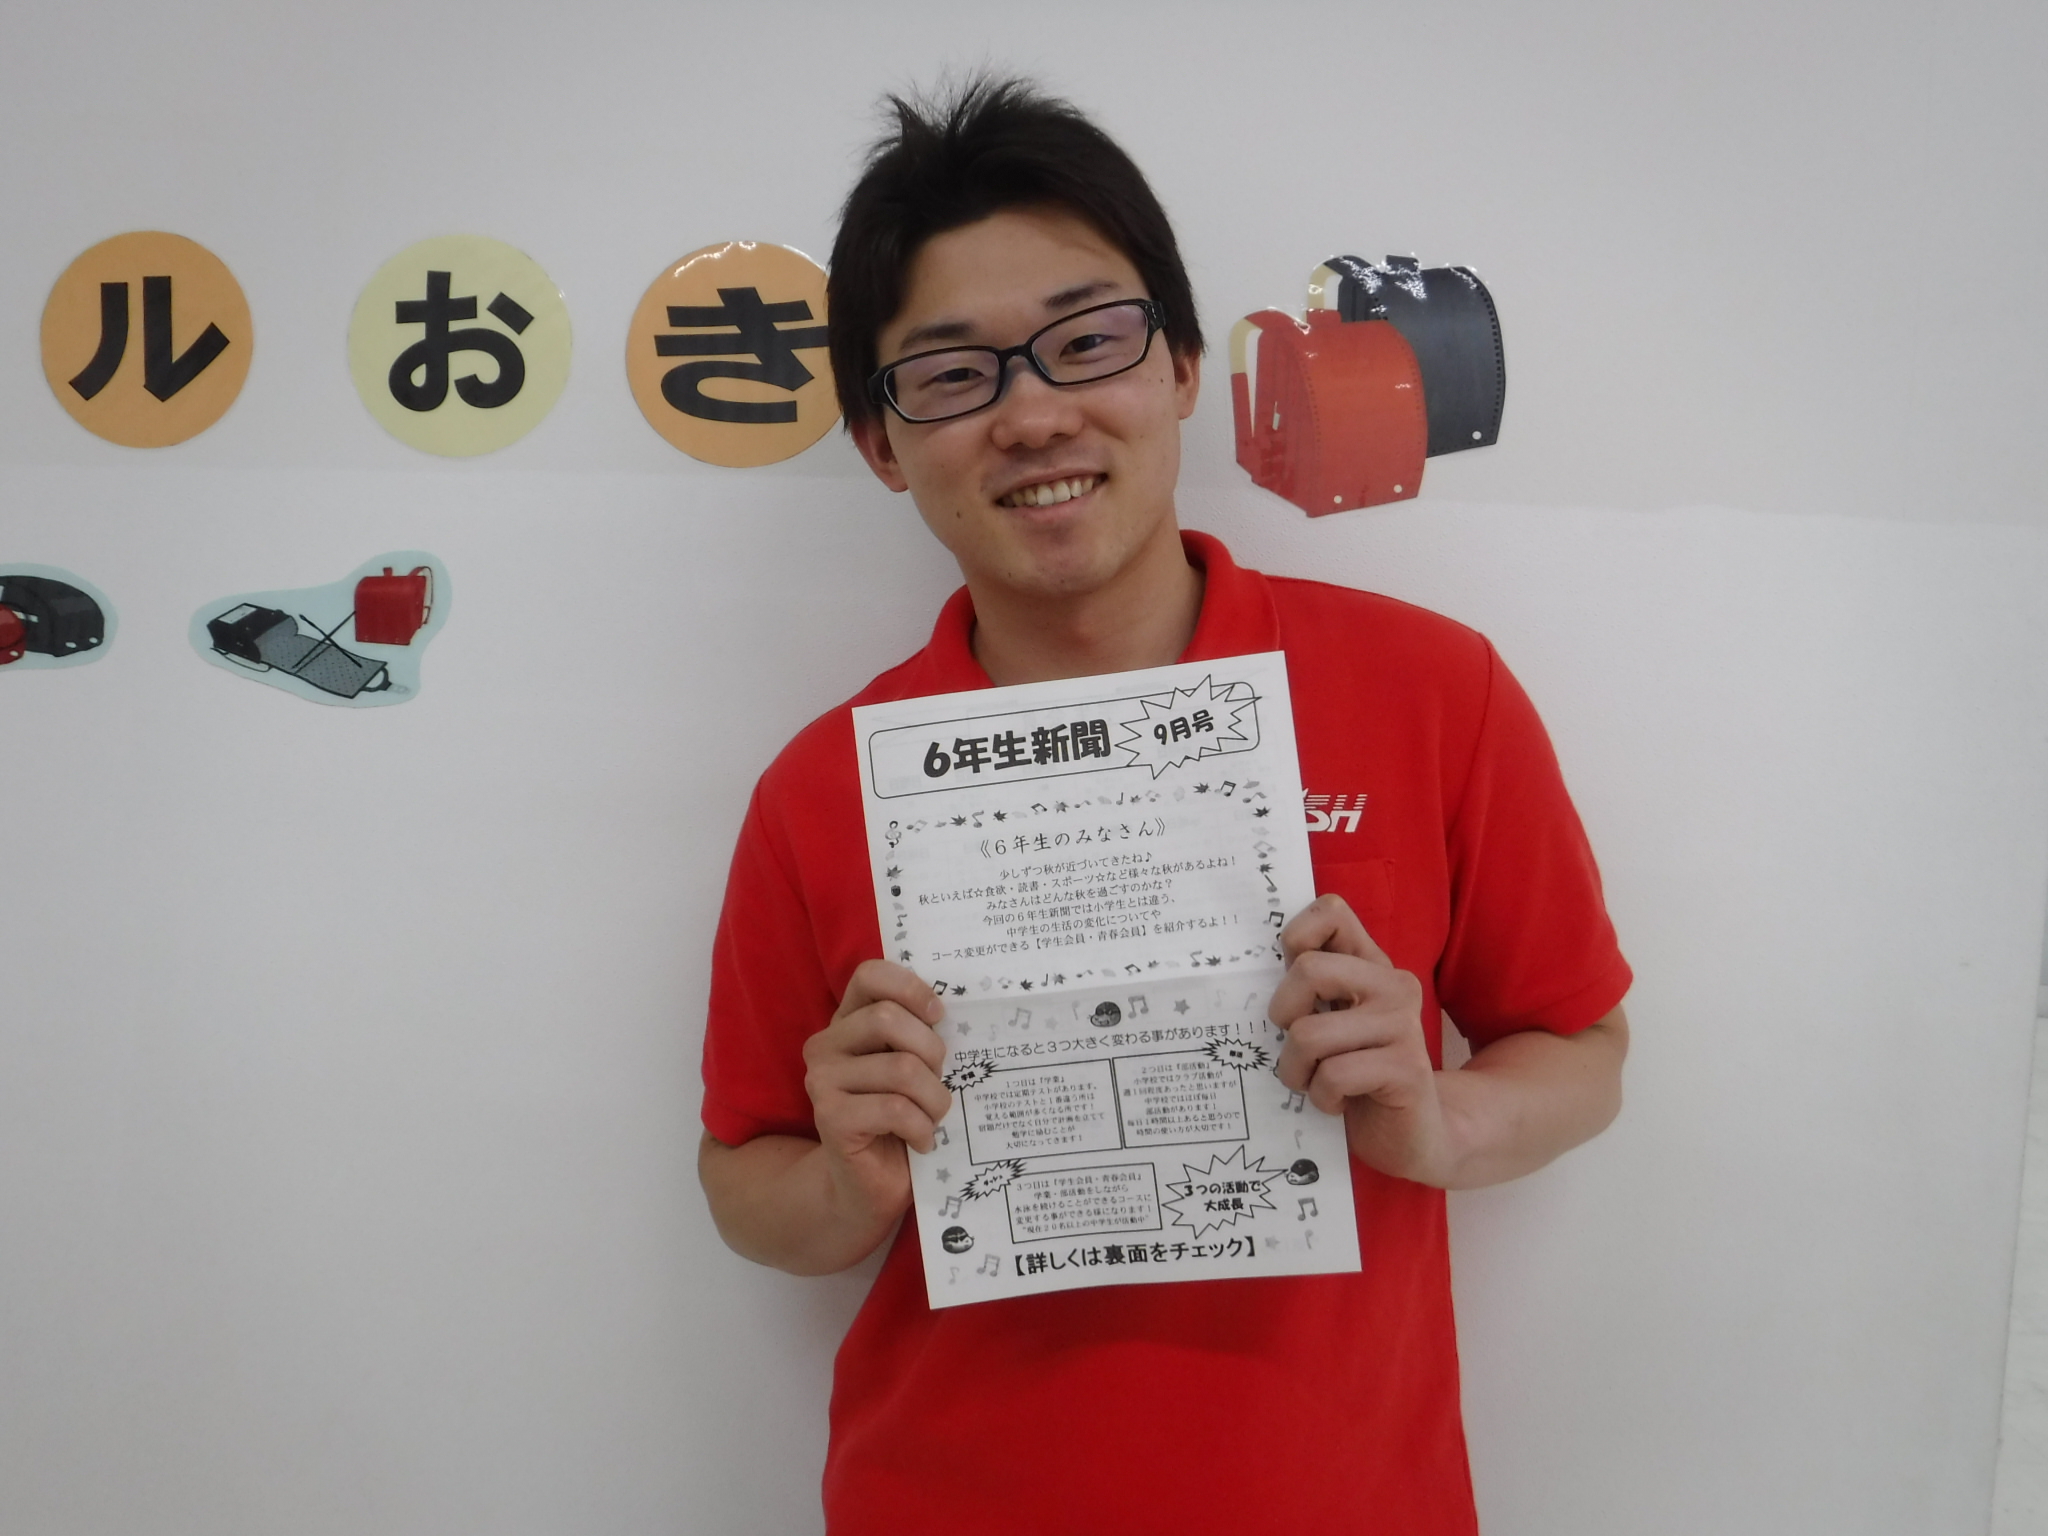 ル お き
SH
6年生新聞
9月号
《６年生のみなさん》
少しずつ秋が近づいてきたね♪
秋といえば☆食欲・読書・スポーツ☆など様々な秋があるよね！
みなさんはどんな秋を過ごすのかな？
今回の６年生新聞では小学生とは違う、
中学生の生活の変化についてや
コース変更ができる【学生会員・青春会員】を紹介するよ！！
中学生になると３つ大きく変わる事があります！！！
学業
１つ目は『学業』
中学校では定期テストがあります。
小学校のテストと１番違う所は
覚える範囲が多くなる所です！
宿題だけでなく自分で計画を立てて
勉学に励むことが
大切になってきます！
２つ目は『部活動』
小学校ではクラブ活動が
週１回程度あったと思いますが
中学校ではほぼ毎日
部活動があります！
毎日１時間以上あると思うので
時間の使い方が大切です！
３つ目は『学生会員・青春会員』
学業・部活動をしながら
水泳を続けることができるコースに
変更する事ができる様になります！
"現在２０名以上の中学生が活動中"
３つの活動で
大成長
【詳しくは裏面をチェック】